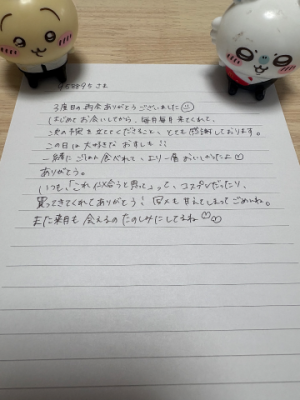 3度目の再会ありがとうございました
はじめてお会いしてから、毎月毎月来てくれて、
次の予定を立ててくださること、とても感謝しております。
この日は大好きなお寿しも!!
一緒にごはん食べれて、より一層おいしかったよ♡
ありがとう。
いつも、「これ似合うと思って」って、コスプレだったり、
買ってきてくれてありがとう!何回も甘えてしまってごめんね。
また来月も会えるのたのしみにしてるね♡♡